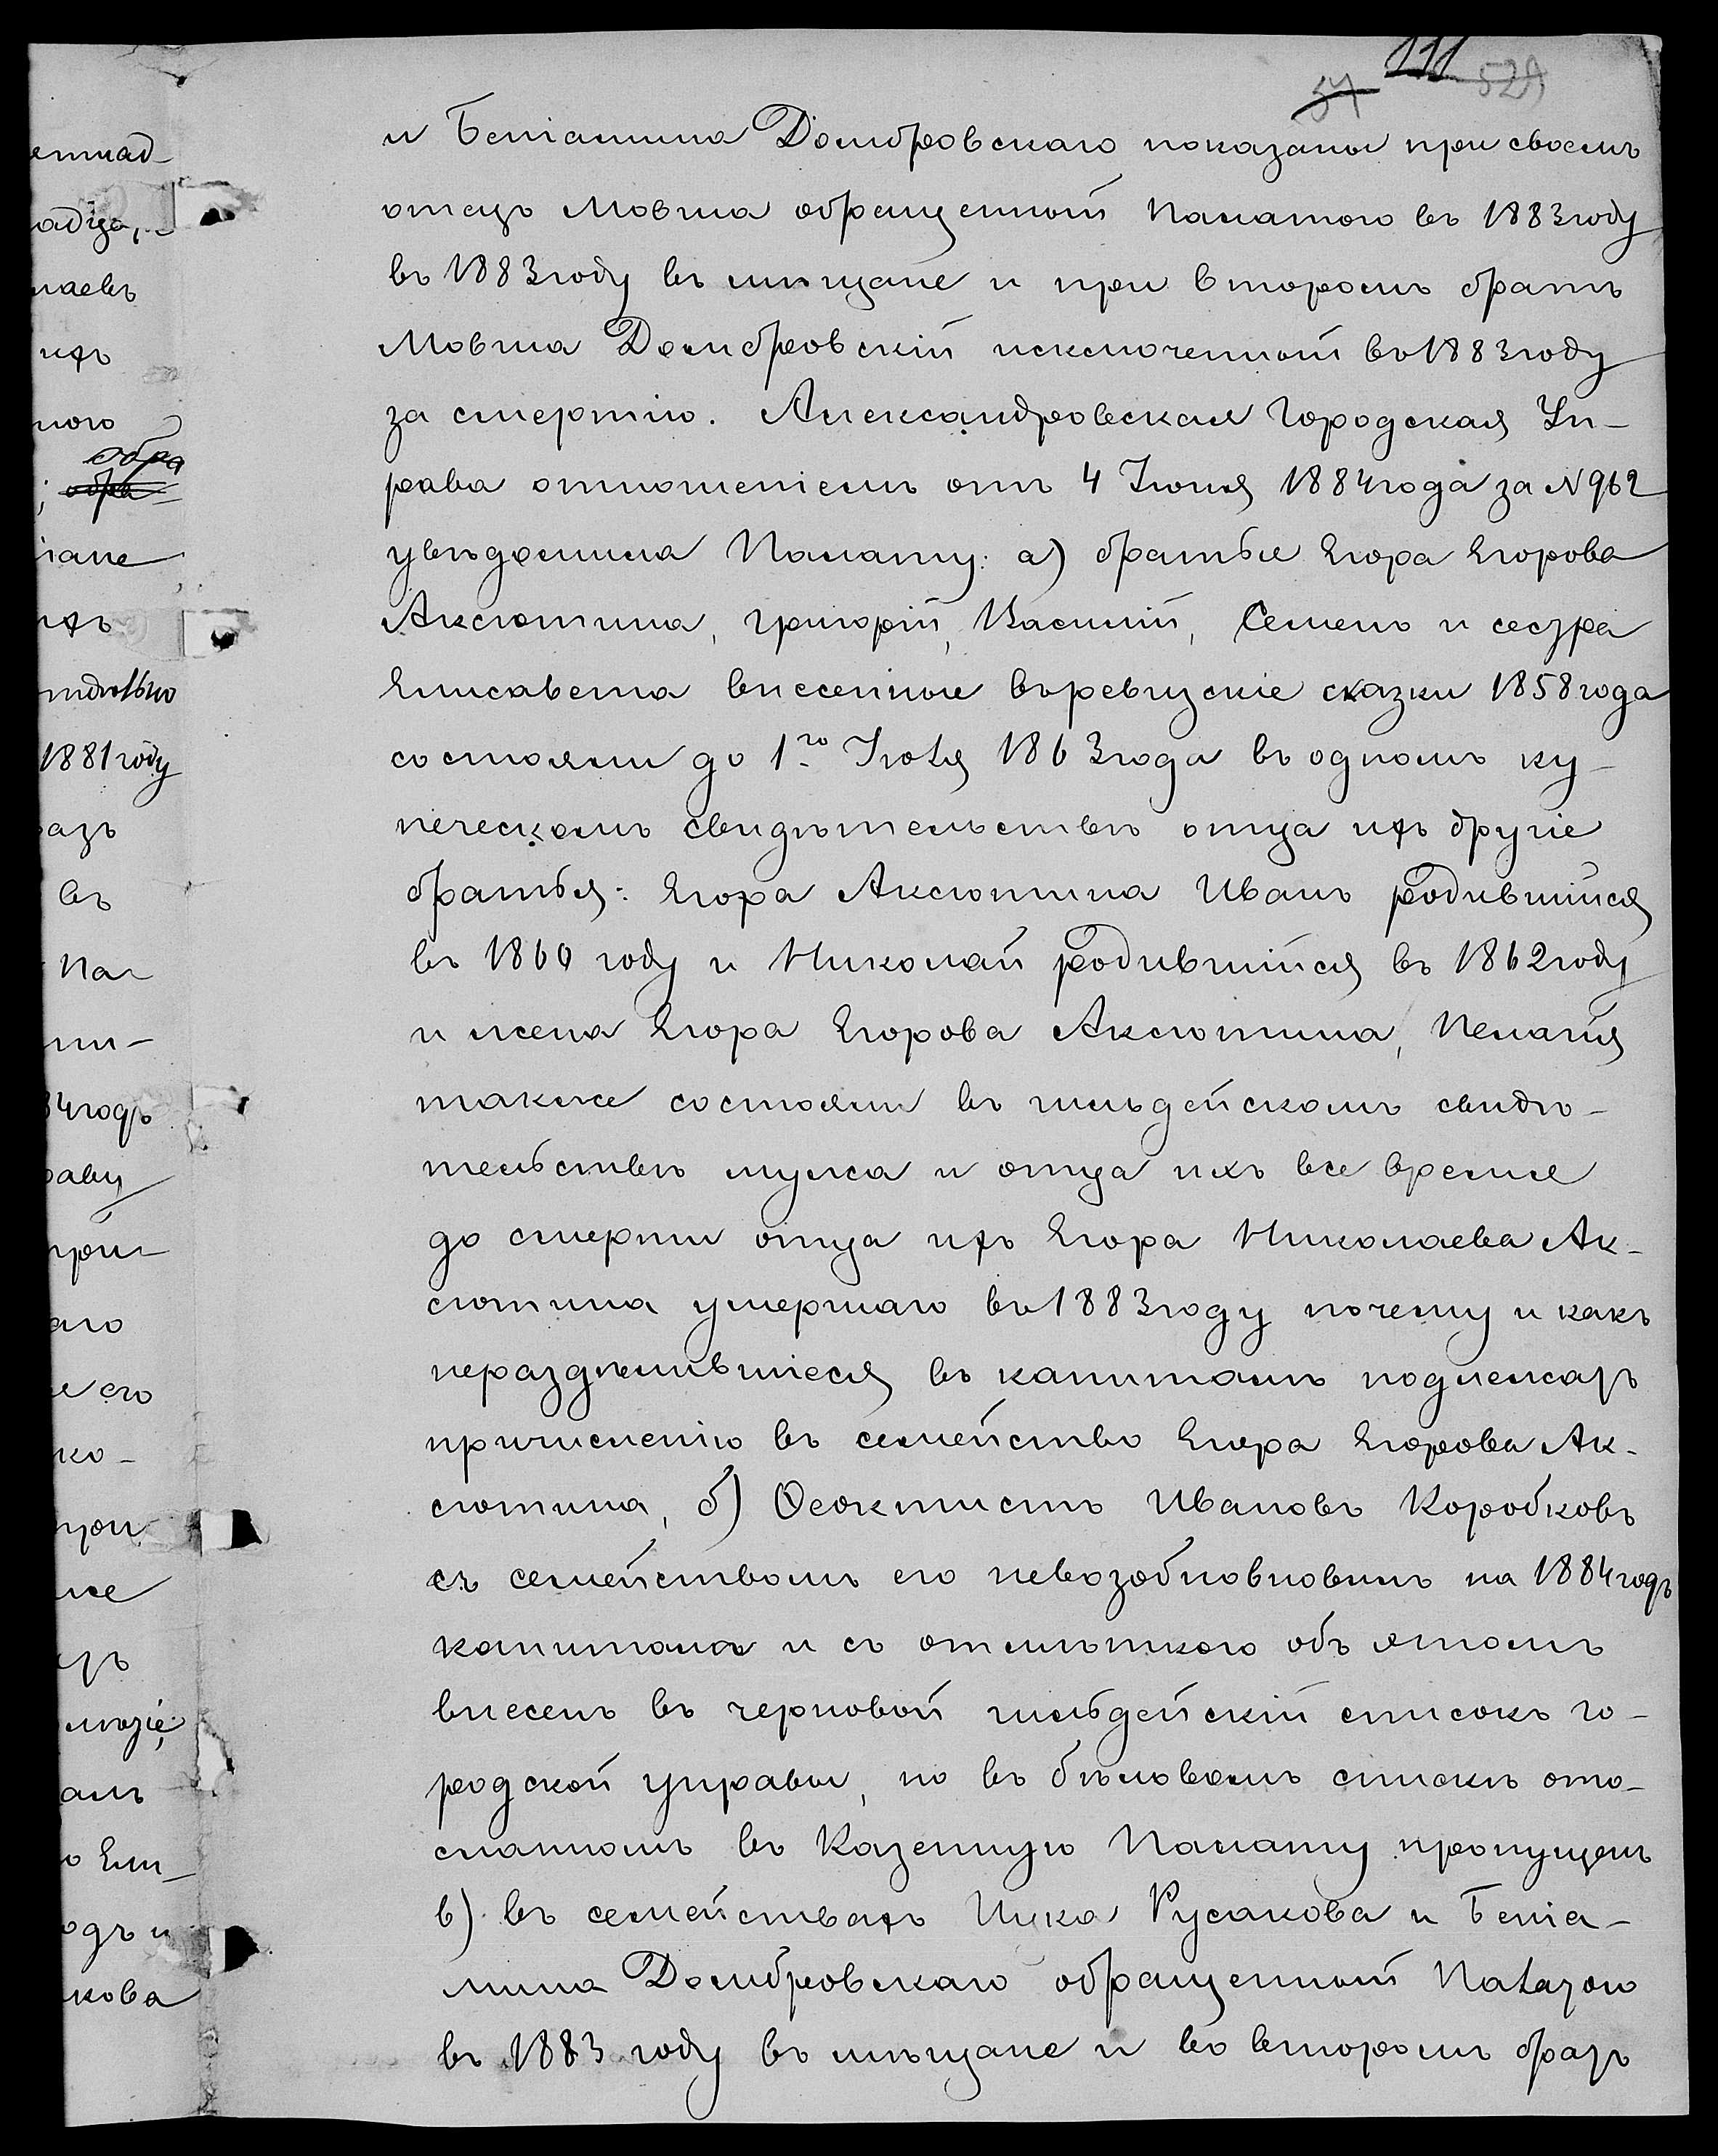 111
57 529
и Беніамина Домбровскаго показаны при своемъ
отецъ Мовша обращенный Палатою въ 1883 году
въ 1883 году въ мѣщане и при второмъ братъ
Мовша Домбровскій исключенный въ 1883 году
за смертію. Александровская Городская Уп-
рава отношеніемъ отъ 4 Іюня 1884 года за № 962
увѣдомила Палату: а) братья Егора Егорова
Аксютина, Григорій, Василій, Семенъ и сестра
Елисавета внесенные въ ревизскіе сказки 1858 года
состояли до 1го Іюля 1863 года въ одномъ ку-
печескомъ свидѣтельствѣ отца ихъ другіе
братья: Егора Аксютина Иванъ родившійся
въ 1860 году и Николай родившійся въ 1862 году
и жена Егора Егорова Аксютина, Пелагія
также состояли въ гильдейскомъ свидѣ-
тельствѣ мужа и отца ихъ все время
до смерти отца ихъ Егора Николаева Ак-
сютина умершаго въ 1883 году почему и какъ
нераздѣлившіеся въ капиталѣ подлежатъ
причисленію въ семейство Егора Егорова Ак-
сютина, б) Ѳеоктистъ Ивановъ Коробковъ
съ семействомъ его невозобновновилъ на 1884 годъ
капитала и съ отмѣткою объ этомъ
внесенъ въ черновой гильдейскій списокъ го-
родской управы, но въ бѣловомъ спискѣ ото-
сланномъ въ Казенную Палату пропущенъ
в) въ семействахъ Ицка Русакова и Беніа-
мина Домбровскаго обращенный Палатою
въ 1883 году въ мѣщане и во второмъ братъ
адца,
лаевъ
ихъ
ного
обра
; обра
щане
ихъ
1881 году
азъ
въ
Па-
ли-
84 годъ
раву
при-
аго
е его
ко-
при
же
амъ
о Ели-
одъ и
кова